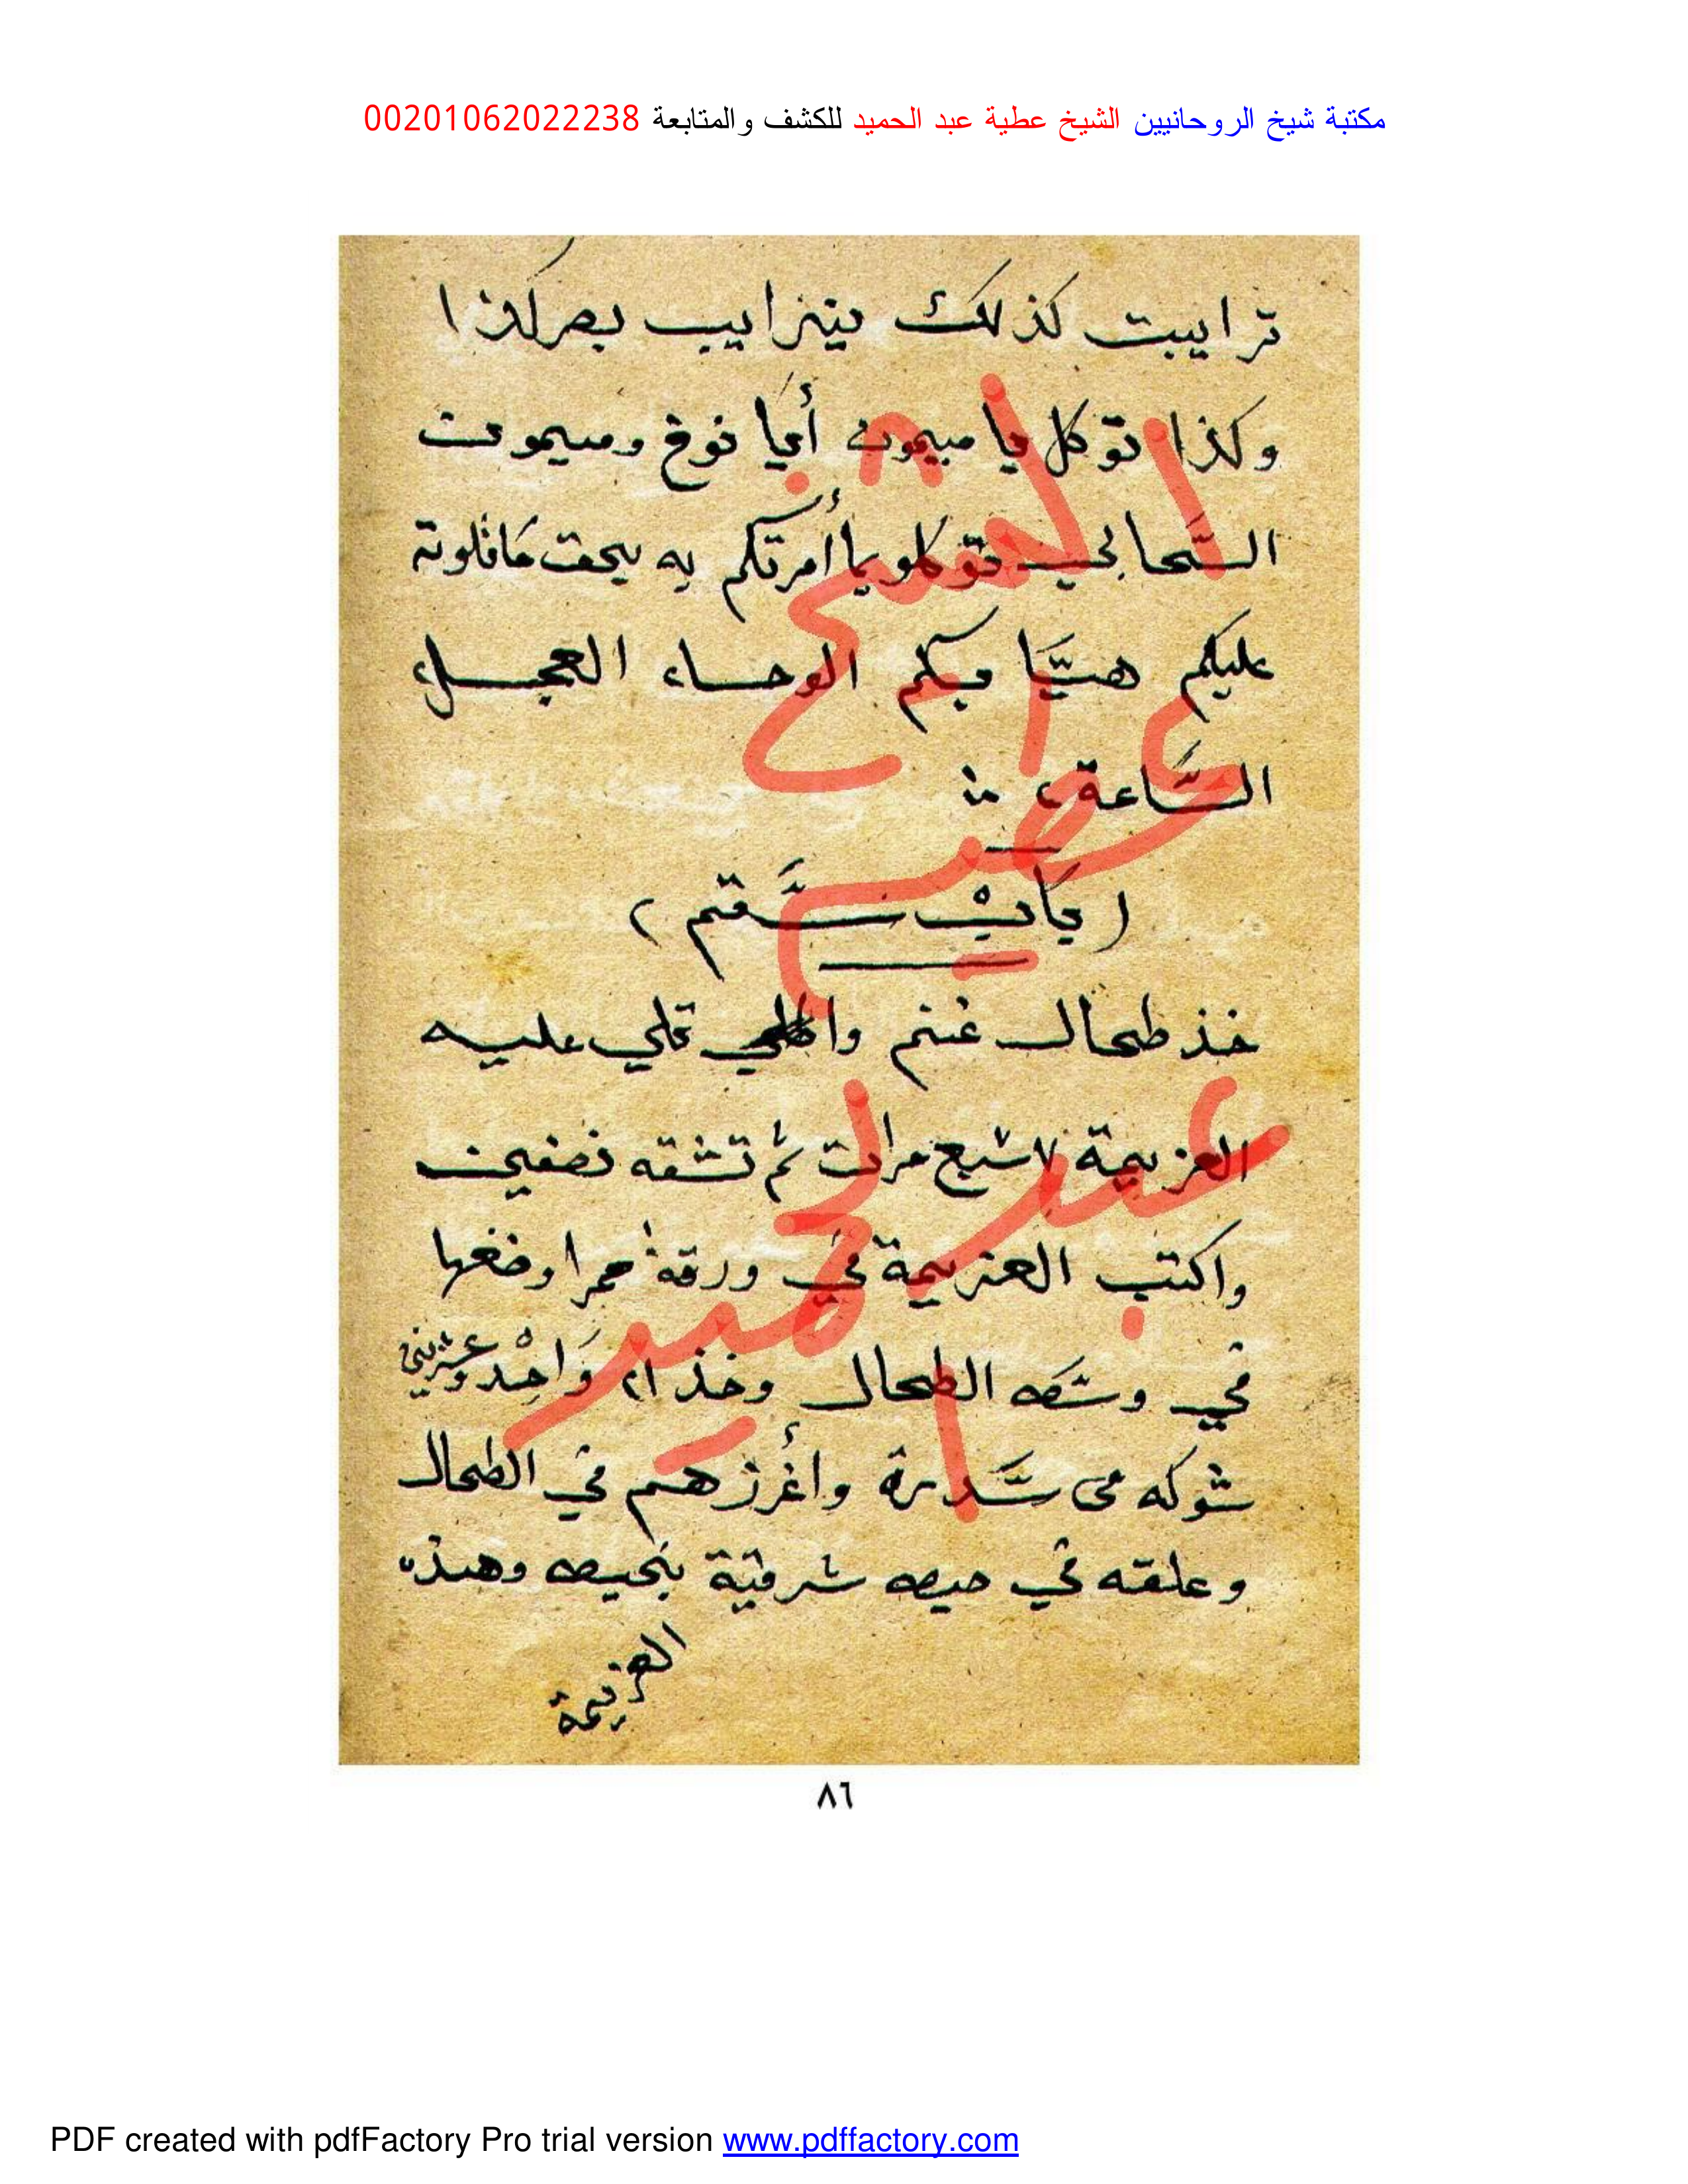 مكتبة شيخ الروحانيين الشيخ عطية عبد الحميد للكشف والمتابعة 00201062022238
ترابيت كذلك يترابيب بصر كذا
وكذا توكل يا ميمون أبا نوخ وميمون
السحابي توكلو بما أمرتكم به بحق ما تلوته
عليكم هيا بكم الوحاء العجل
الساعة
( باب سقم )
خذ طحال غنم تلي عليه
العزيمة ٧ سبع مرات ثم تشقه نصفين
واكتب العزيمة في ورقة حمرا وضعها
في وسطه الطحال وخذ ٢١ واحد وعشرين
شوكه من سدرة وأغرزهم في الطحال
وعلقه في حيطه شرقية بخيطه وهذه
العزيمة
الشيخ
عطية
عبد
الحميد
٨٦
PDF created with pdfFactory Pro trial version www.pdffactory.com